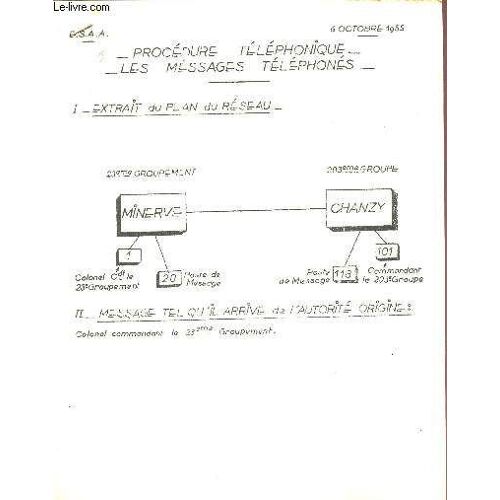 le-livre.com
E.S.A.A.
6 OCTOBRE 1955
_ PROCÉDURE TÉLÉPHONIQUE _
_ LES MESSAGES TÉLÉPHONÉS _
I _ EXTRAIT du PLAN du RÉSEAU _
23ème GROUPEMENT
203ème GROUPE
MINERVE
CHANZY
1
20
118
101
Colonel Cdt le
23e Groupement
Poste de
Message
Poste
de Message
Commandant
le 203e Groupe
II _ MESSAGE TEL QU'IL ARRIVE de L'AUTORITÉ ORIGINE :
Colonel commandant le 23ème Groupement.